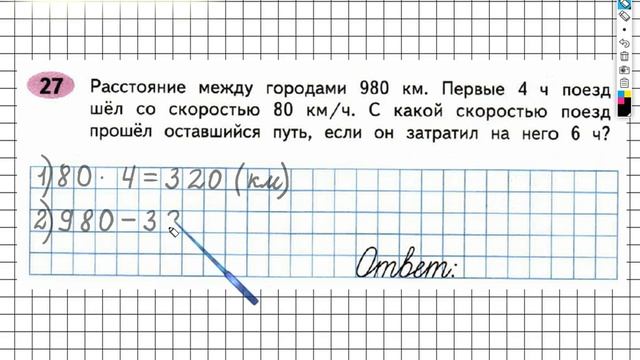 27 Расстояние между городами 980 км. Первые 4 ч поезд
шёл со скоростью 80 км/ч. С какой скоростью поезд
прошёл оставшийся путь, если он затратил на него 6 ч?
1) 80 · 4 = 320 (км)
2) 980 – 32
Ответ: